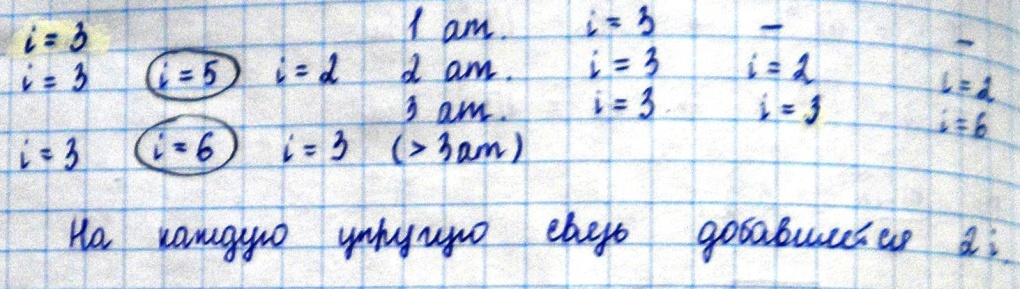 i = 3 1 ат. i = 3 – –
i = 3 i = 5 i = 2 2 ат. i = 3 i = 2 i = 2
3 ат. i = 3 i = 3 i = 6
i = 3 i = 6 i = 3 (> 3 ат)
На каждую упругую связь добавляется 2 i